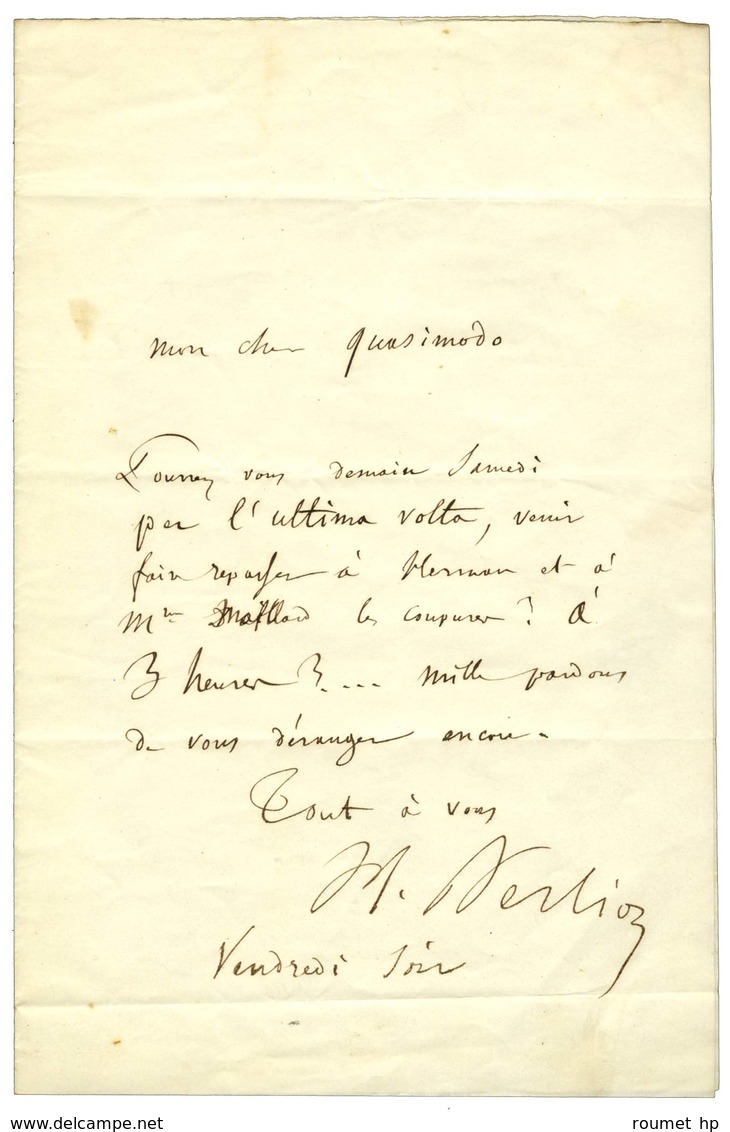 Mon cher Quasimodo
Pourrez vous demain Samedi
per l'ultima volta, venir
faire repasser à Herman et à
Mme Maillard les coupures? à
3 heures?.... mille pardons
de vous déranger encore.
Tout à vous
H. Berlioz
Vendredi soir
www.delcampe.net
roumet hp